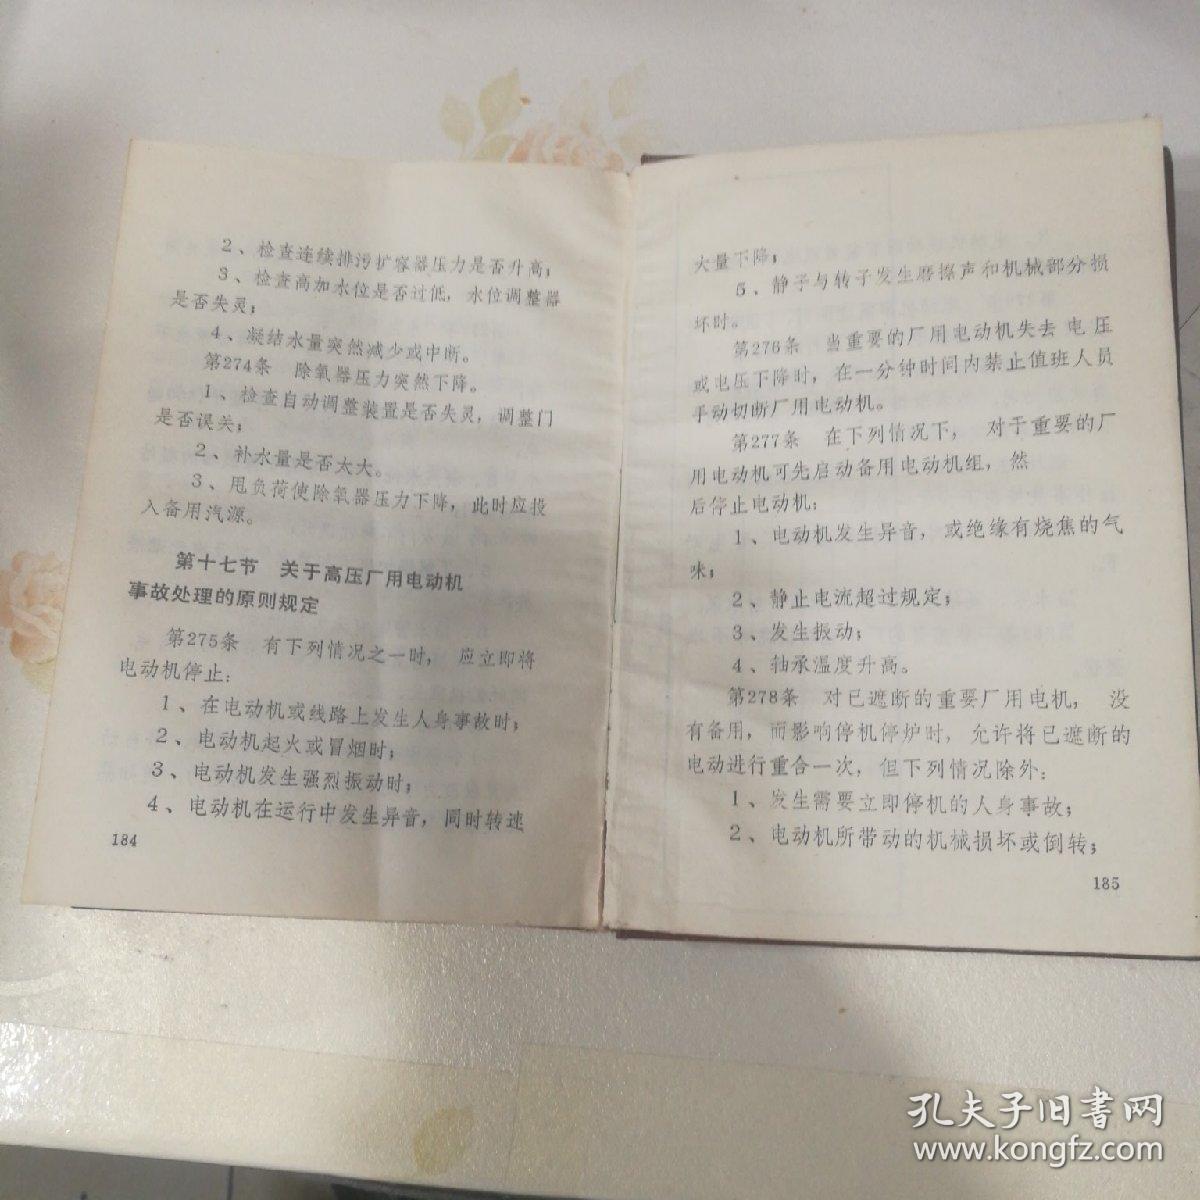 2、检查连续排污扩容器压力是否升高；
3、检查高加水位是否过低，水位调整器
是否失灵；
4、凝结水量突然减少或中断。
第274条　除氧器压力突然下降。
1、检查自动调整装置是否失灵，调整门
是否误关；
2、补水量是否太大。
3、甩负荷使除氧器压力下降，此时应投
入备用汽源。
第十七节　关于高压厂用电动机
事故处理的原则规定
第275条　有下列情况之一时，应立即将
电动机停止：
1、在电动机或线路上发生人身事故时；
2、电动机起火或冒烟时；
3、电动机发生强烈振动时；
4、电动机在运行中发生异音，同时转速
184
大量下降；
5、静子与转子发生磨擦声和机械部分损
坏时。
第276条　当重要的厂用电动机失去电压
或电压下降时，在一分钟时间内禁止值班人员
手动切断厂用电动机。
第277条　在下列情况下，对于重要的厂
用电动机可先启动备用电动机组，然
后停止电动机：
1、电动机发生异音，或绝缘有烧焦的气
味；
2、静止电流超过规定；
3、发生振动；
4、轴承温度升高。
第278条　对已遮断的重要厂用电机，没
有备用，而影响停机停炉时，允许将已遮断的
电动进行重合一次，但下列情况除外：
1、发生需要立即停机的人身事故；
2、电动机所带动的机械损坏或倒转；
185
孔夫子旧书网
www.kongfz.com